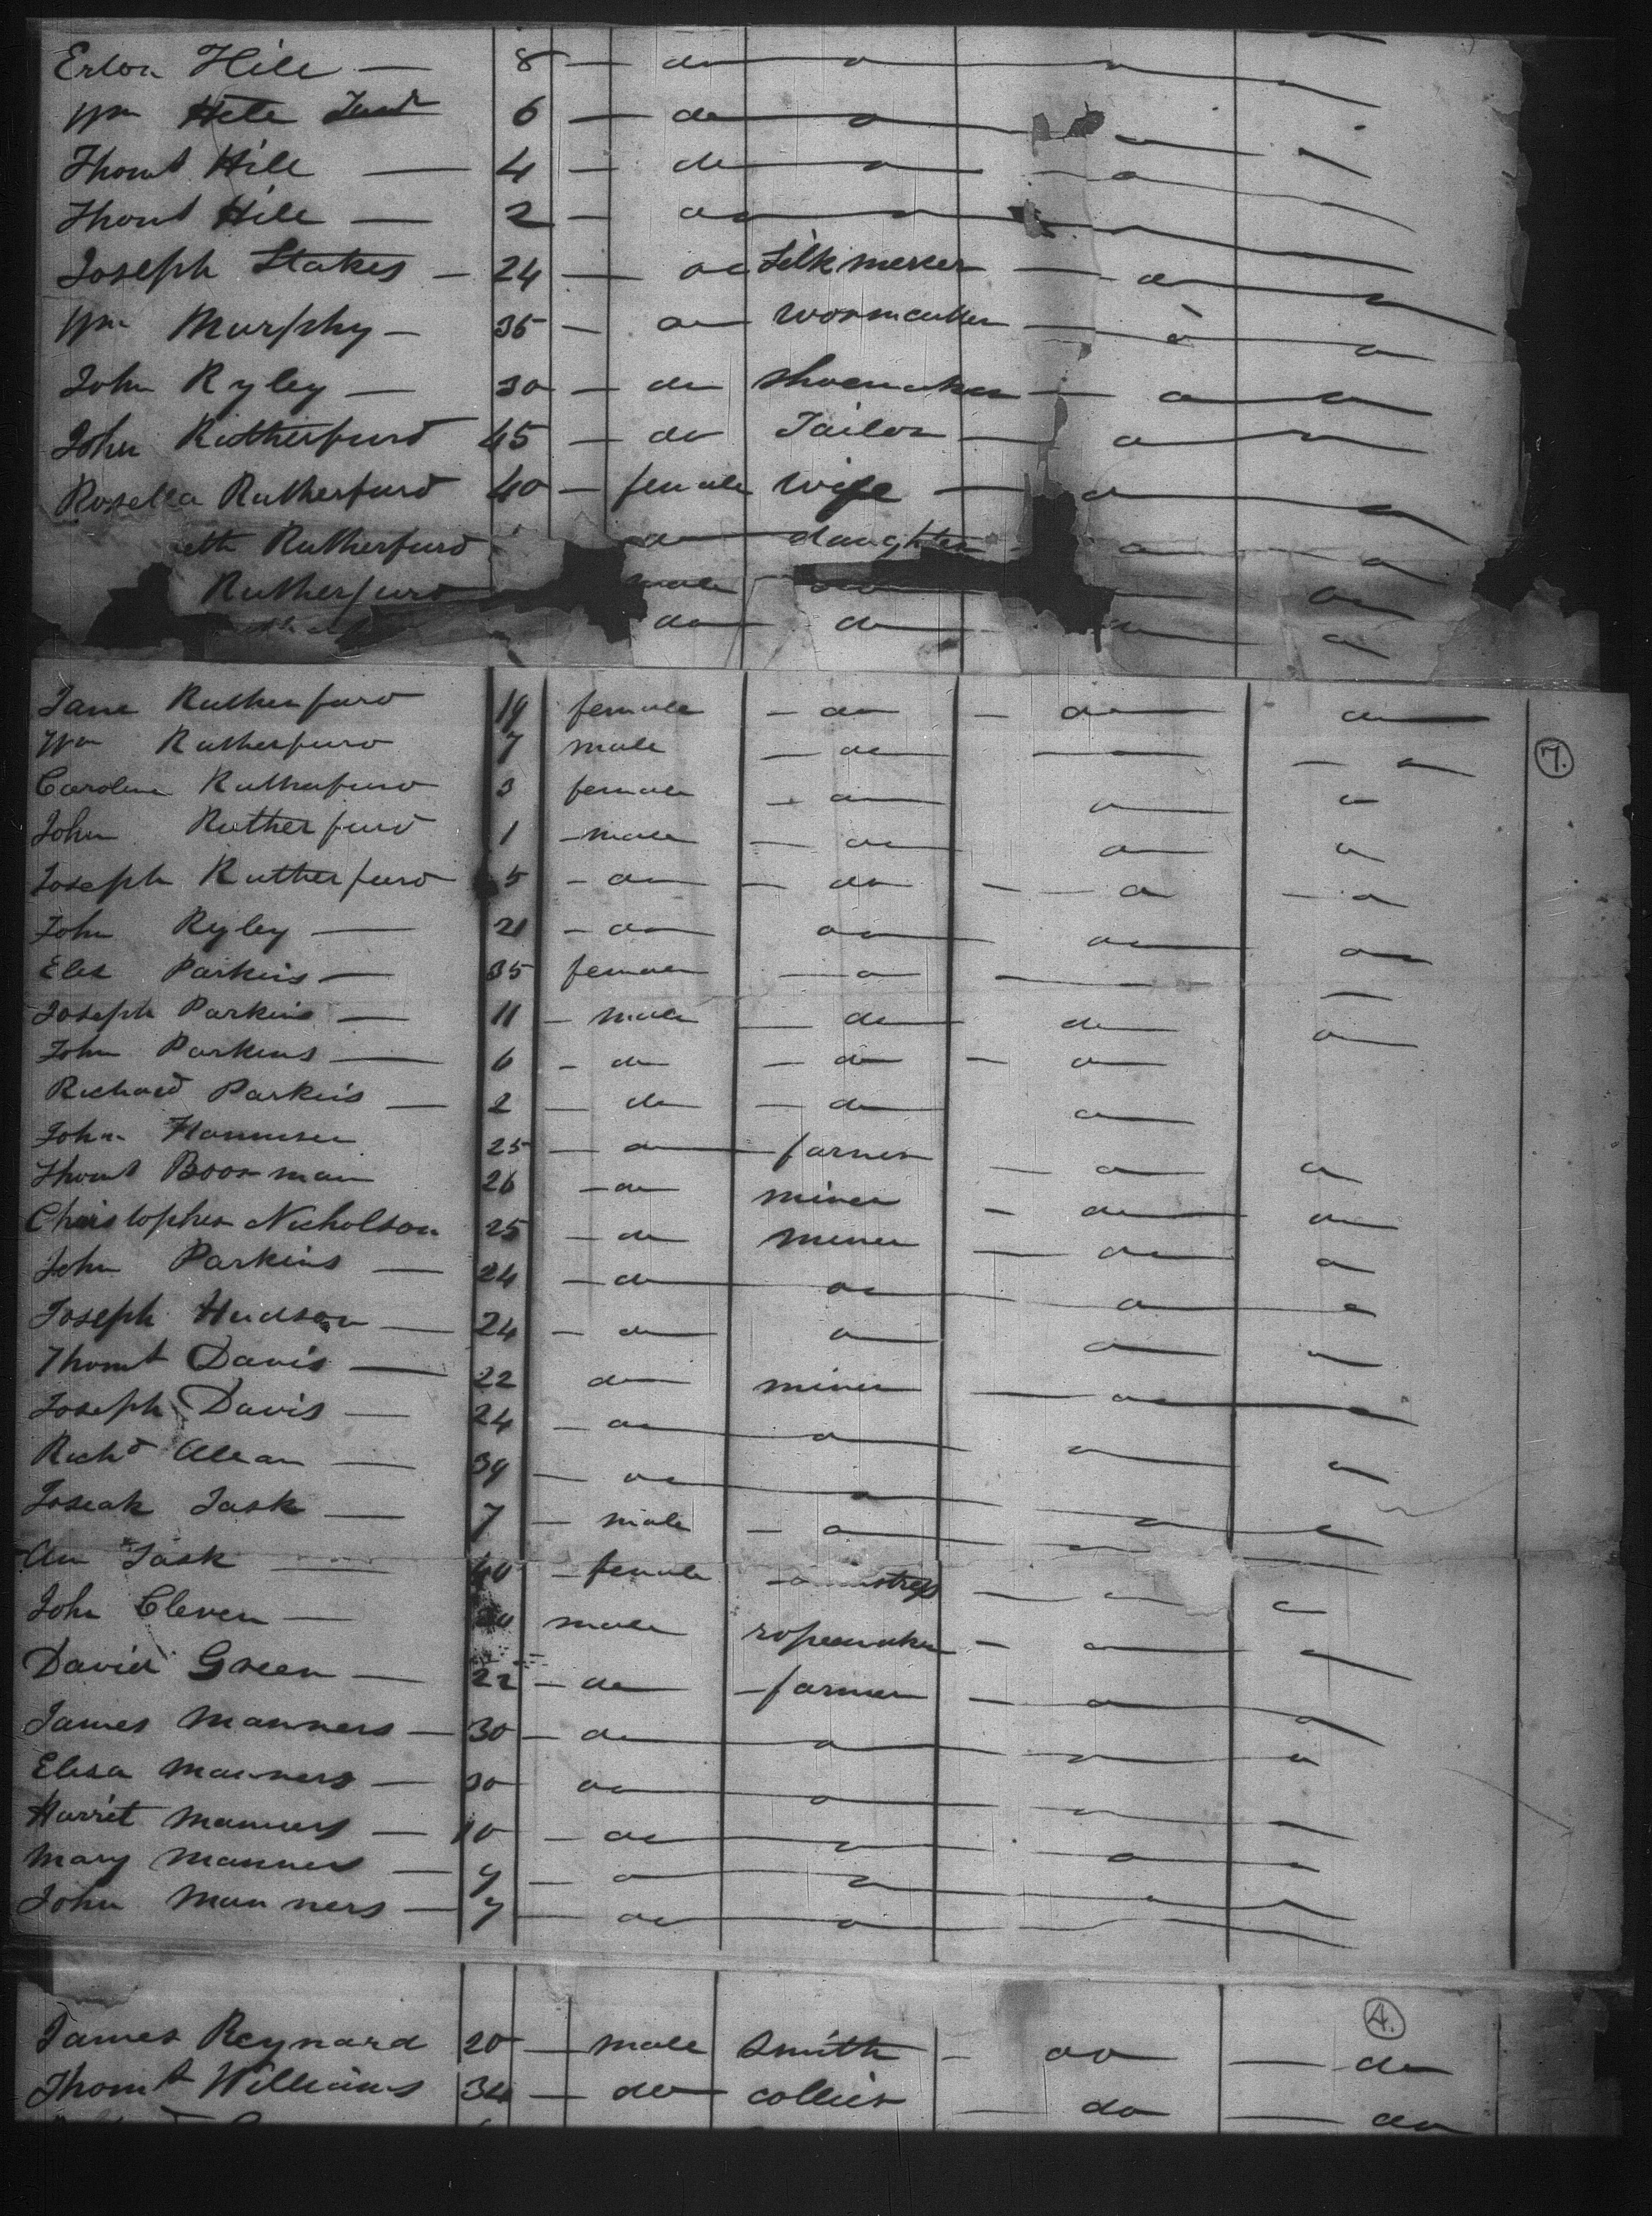 Hill — 8 — do
Wm 6 — do
Thomt Hill — 4 — do
Thomt Hill — 2 — do
Joseph Stakes — 24 — do Silk mercer — do
Wm Murphy — 35 — do — do
John Ryley — 30 — do shoemaker — do
John Rutherfurd 45 — do Tailor — do
Rosella Rutherfurd 40 — female wife — do
eth Rutherfurd do daughter do
Rutherfurd male do do
do do do do
Jane Rutherfurd 19 female — do — do do
Wm Rutherfurd 7 male — do
Caroline Rutherfurd 3 female — do do do
John Rutherfurd 1 — male — do do do
Joseph Rutherfurd 5 — do — do — do — do
John Ryley — 21 — do do do do
Parkins — 35 female — do
Joseph Parkins — 11 — male — do do do
John Parkins — 6 — do — do — do
Richard Parkins — 2 — do — do do
John 25 — do — farmer — do do
Thomt Boorman 26 — do miner — do do
Christopher Nicholson 25 — do miner — do do
John Parkins — 24 — do do do do
Joseph Hudson — 24 — do do do do
Thomt Davis — 22 do miner — do
Joseph Davis — 24 — do do do do
Richd — 39 — do do
Task — 7 — male — do do do
An Task — 40 — female do do
John Cleven — male ropemaker — do do
David Green — 22 — do — farmer — do do
James Manners — 30 — do do do do
Elisa Manners — 30 do do
Harriet Manners — 10 — do do do
Mary Manners — 9 — do do
John Manners — 7 — do do
James Reynard 20 — male Smith — do — do
Thomt Williams 34 — do collier — do — do
7.
4.